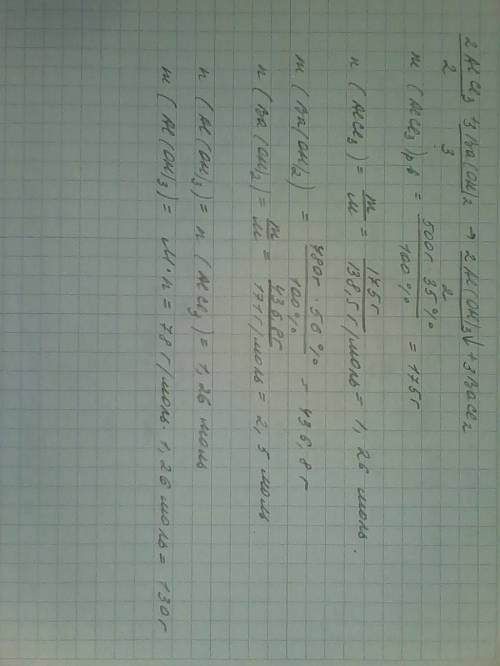 2AlCl₃ + 3Ba(OH)₂ → 2Al(OH)₃↓ + 3BaCl₂
2 3 2
m (AlCl₃) р-в = 500г 35% / 100% = 175г
n (AlCl₃) = m / M = 175г / 138,5г/моль = 1,26 моль.
m (Ba(OH)₂) = 780г · 56% / 100% = 436,8г
n (Ba(OH)₂) = m / M = 436,8г / 171г/моль = 2,5 моль.
n (Al(OH)₃) = n (AlCl₃) = 1,26 моль
m (Al(OH)₃) = M · n = 78г/моль · 1,26 моль = 130г